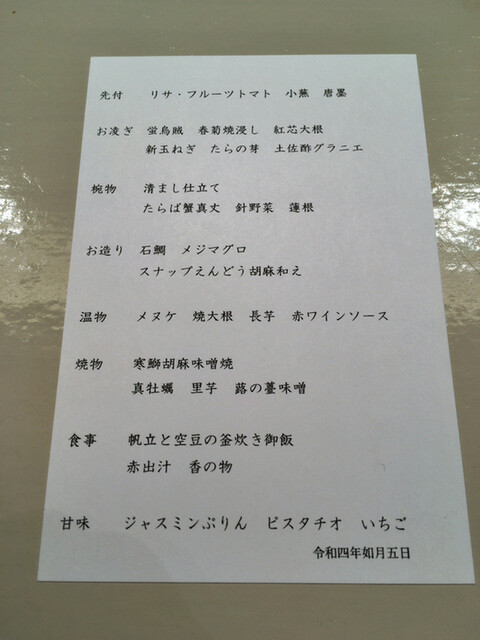 先付　リサ・フルーツトマト　小蕪　唐墨
お凌ぎ　蛍烏賊　春菊焼浸し　紅芯大根
新玉ねぎ　たらの芽　土佐酢グラニエ
椀物　清まし仕立て
たらば蟹真丈　針野菜　蓮根
お造り　石鯛　メジマグロ
スナップえんどう胡麻和え
温物　メヌケ　焼大根　長芋　赤ワインソース
焼物　寒鰤胡麻味噌焼
真牡蠣　里芋　蕗の薹味噌
食事　帆立と空豆の釜炊き御飯
赤出汁　香の物
甘味　ジャスミンぷりん　ピスタチオ　いちご
令和四年如月五日